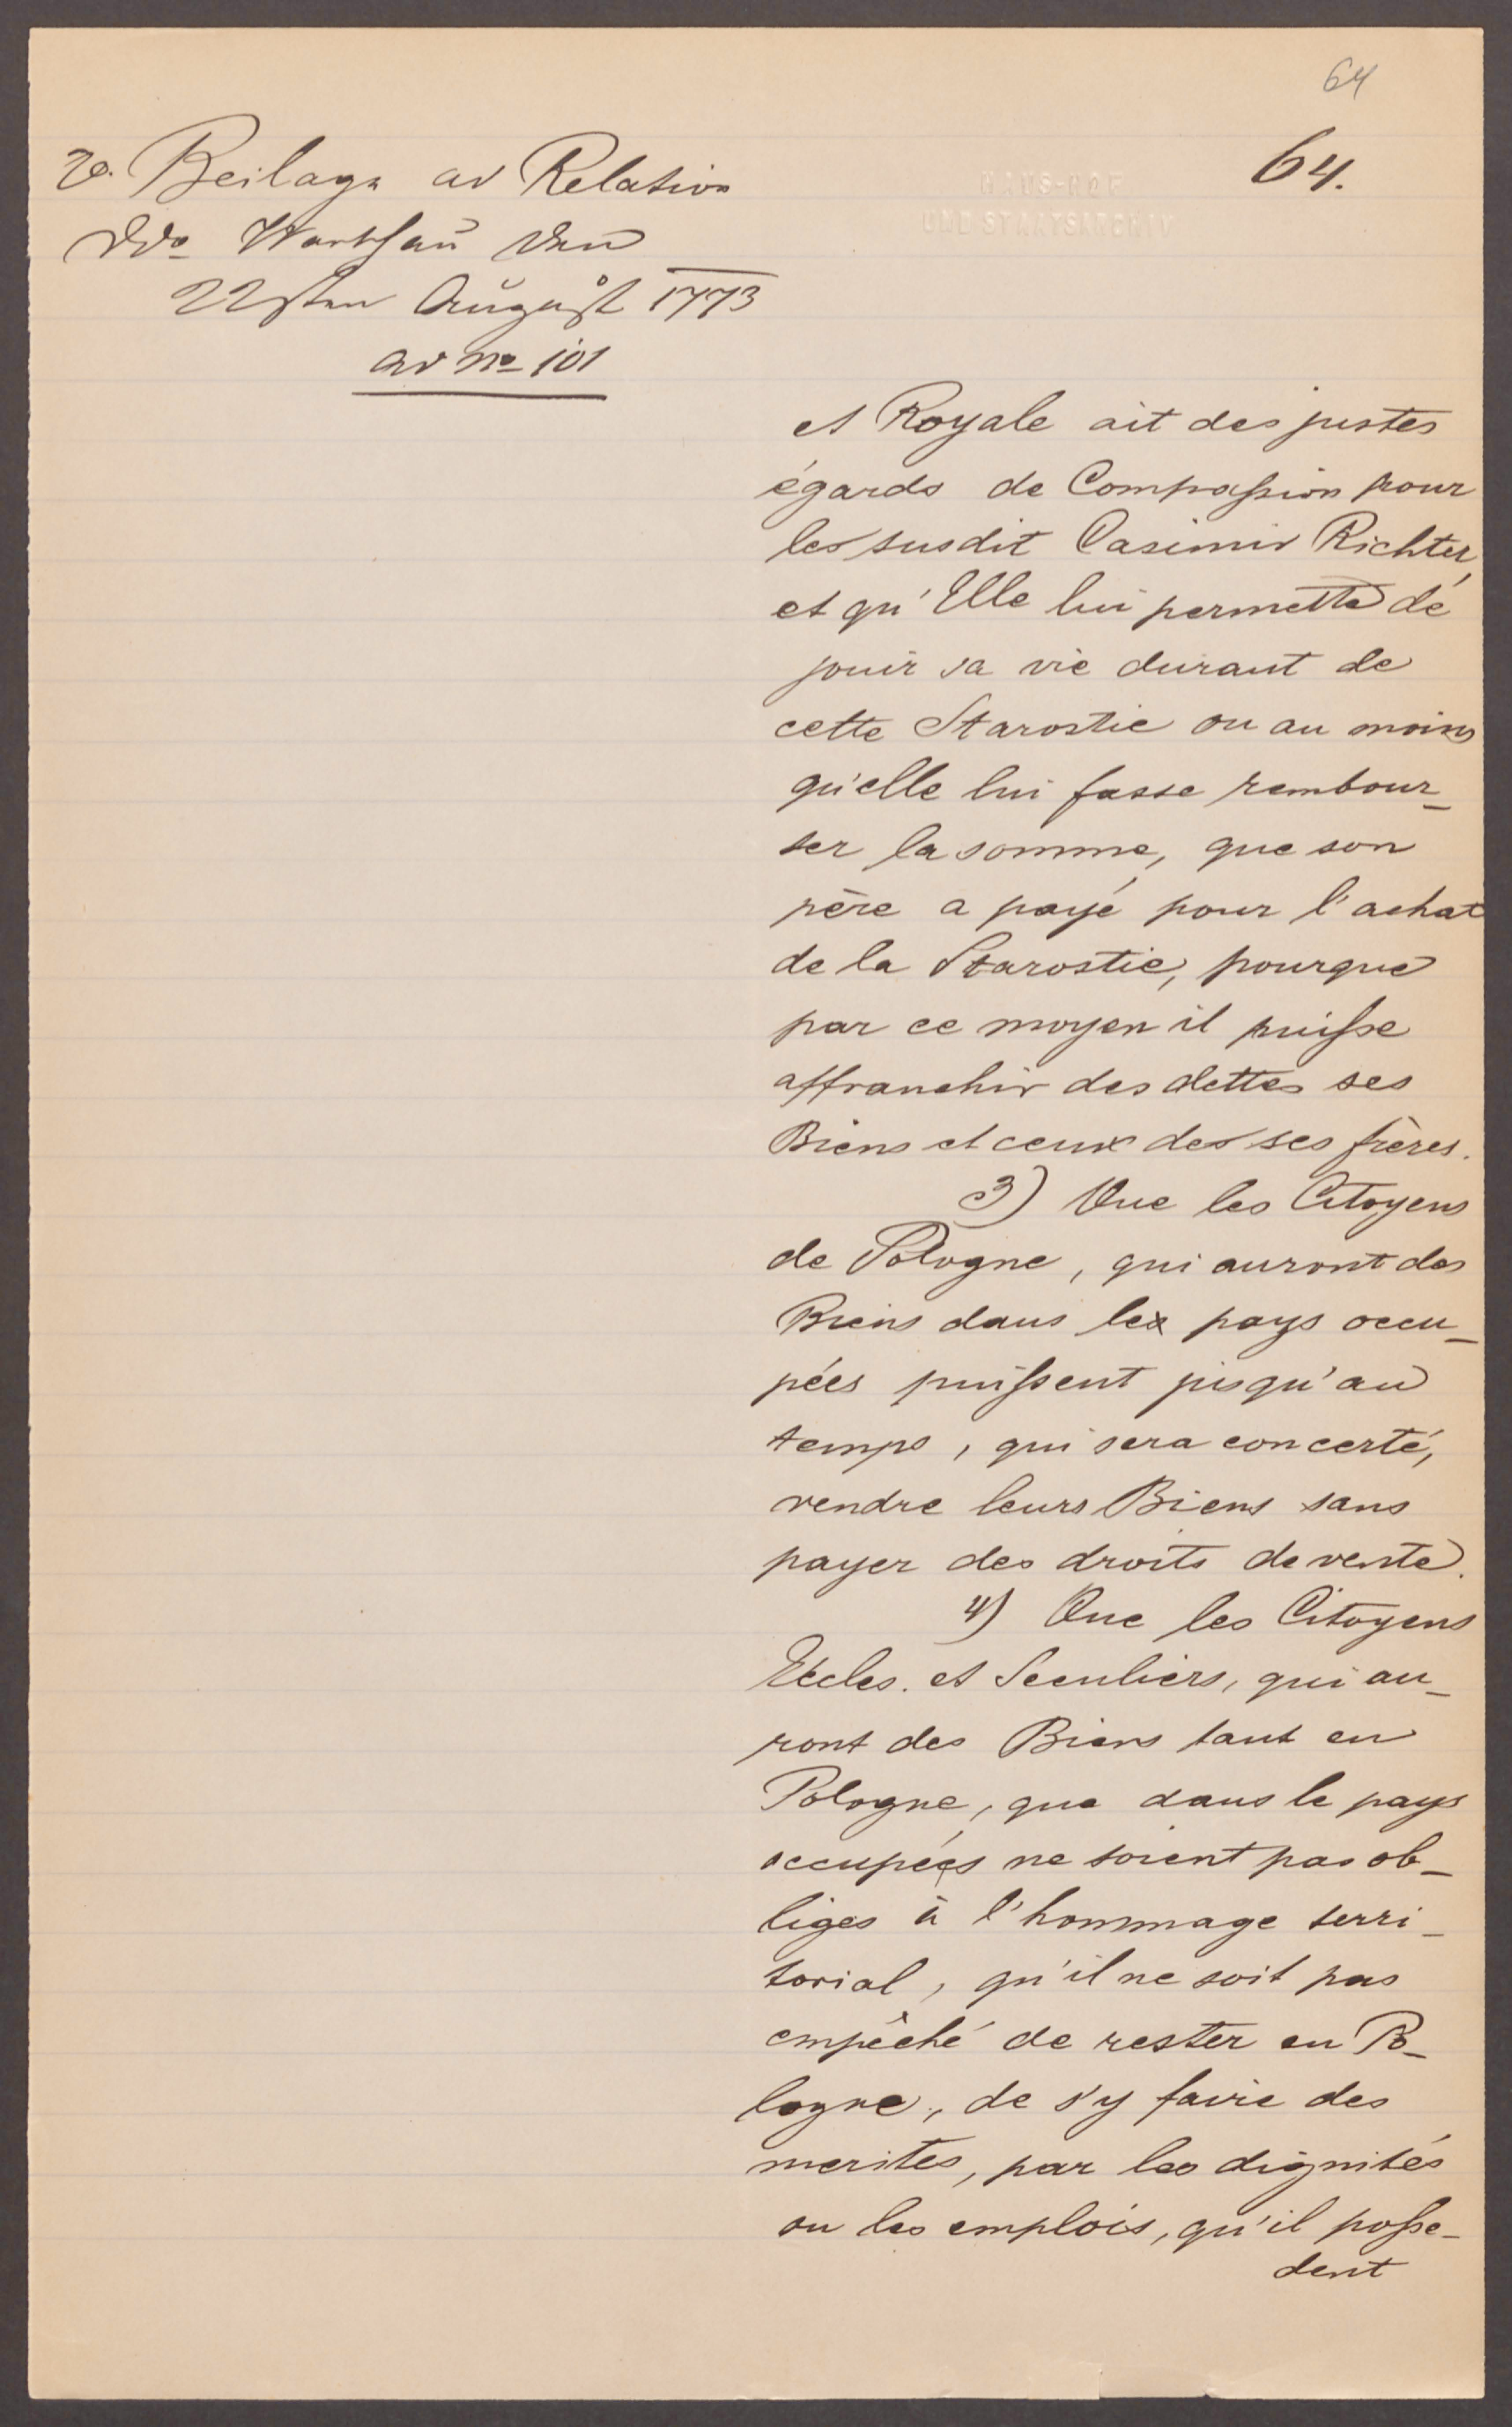 64
64.
HAUS-HOF
UND STAATSARCHIV
Beilage ad Relation
ddo Warschau den
22sten August 1773
ad No 101
et Royale ait des justes
égards de Compassion pour
les susdit Casimir Richter,
et qu'Elle lui permette de
jouir sa vie durant de
cette Starostie ou au moins
qu'elle lui fasse rembour-
ser la somme, que son
père a payé pour l'achat
de la Starostie, pourque
par ce moyen il puisse
affranchir des dettes ses
Biens et ceux des ses frères.
3) Que les Citoyens
de Pologne, qui auront des
Biens dans les pays occu-
pées puissent jusqu'au
temps, qui sera concerté,
vendre leurs Biens sans
payer des droits de vente.
4) Que les Citoyens
Eccles. et Seculiers, qui au-
ront des Biens tant en
Pologne, que dans le pays
occupées ne soient pas ob-
liges à l'hommage terri-
torial, qu'il ne soit pas
empêché de rester en Po-
logne, de s'y faire des
merites, par les dignités
ou les emplois, qu'il posse-
dent